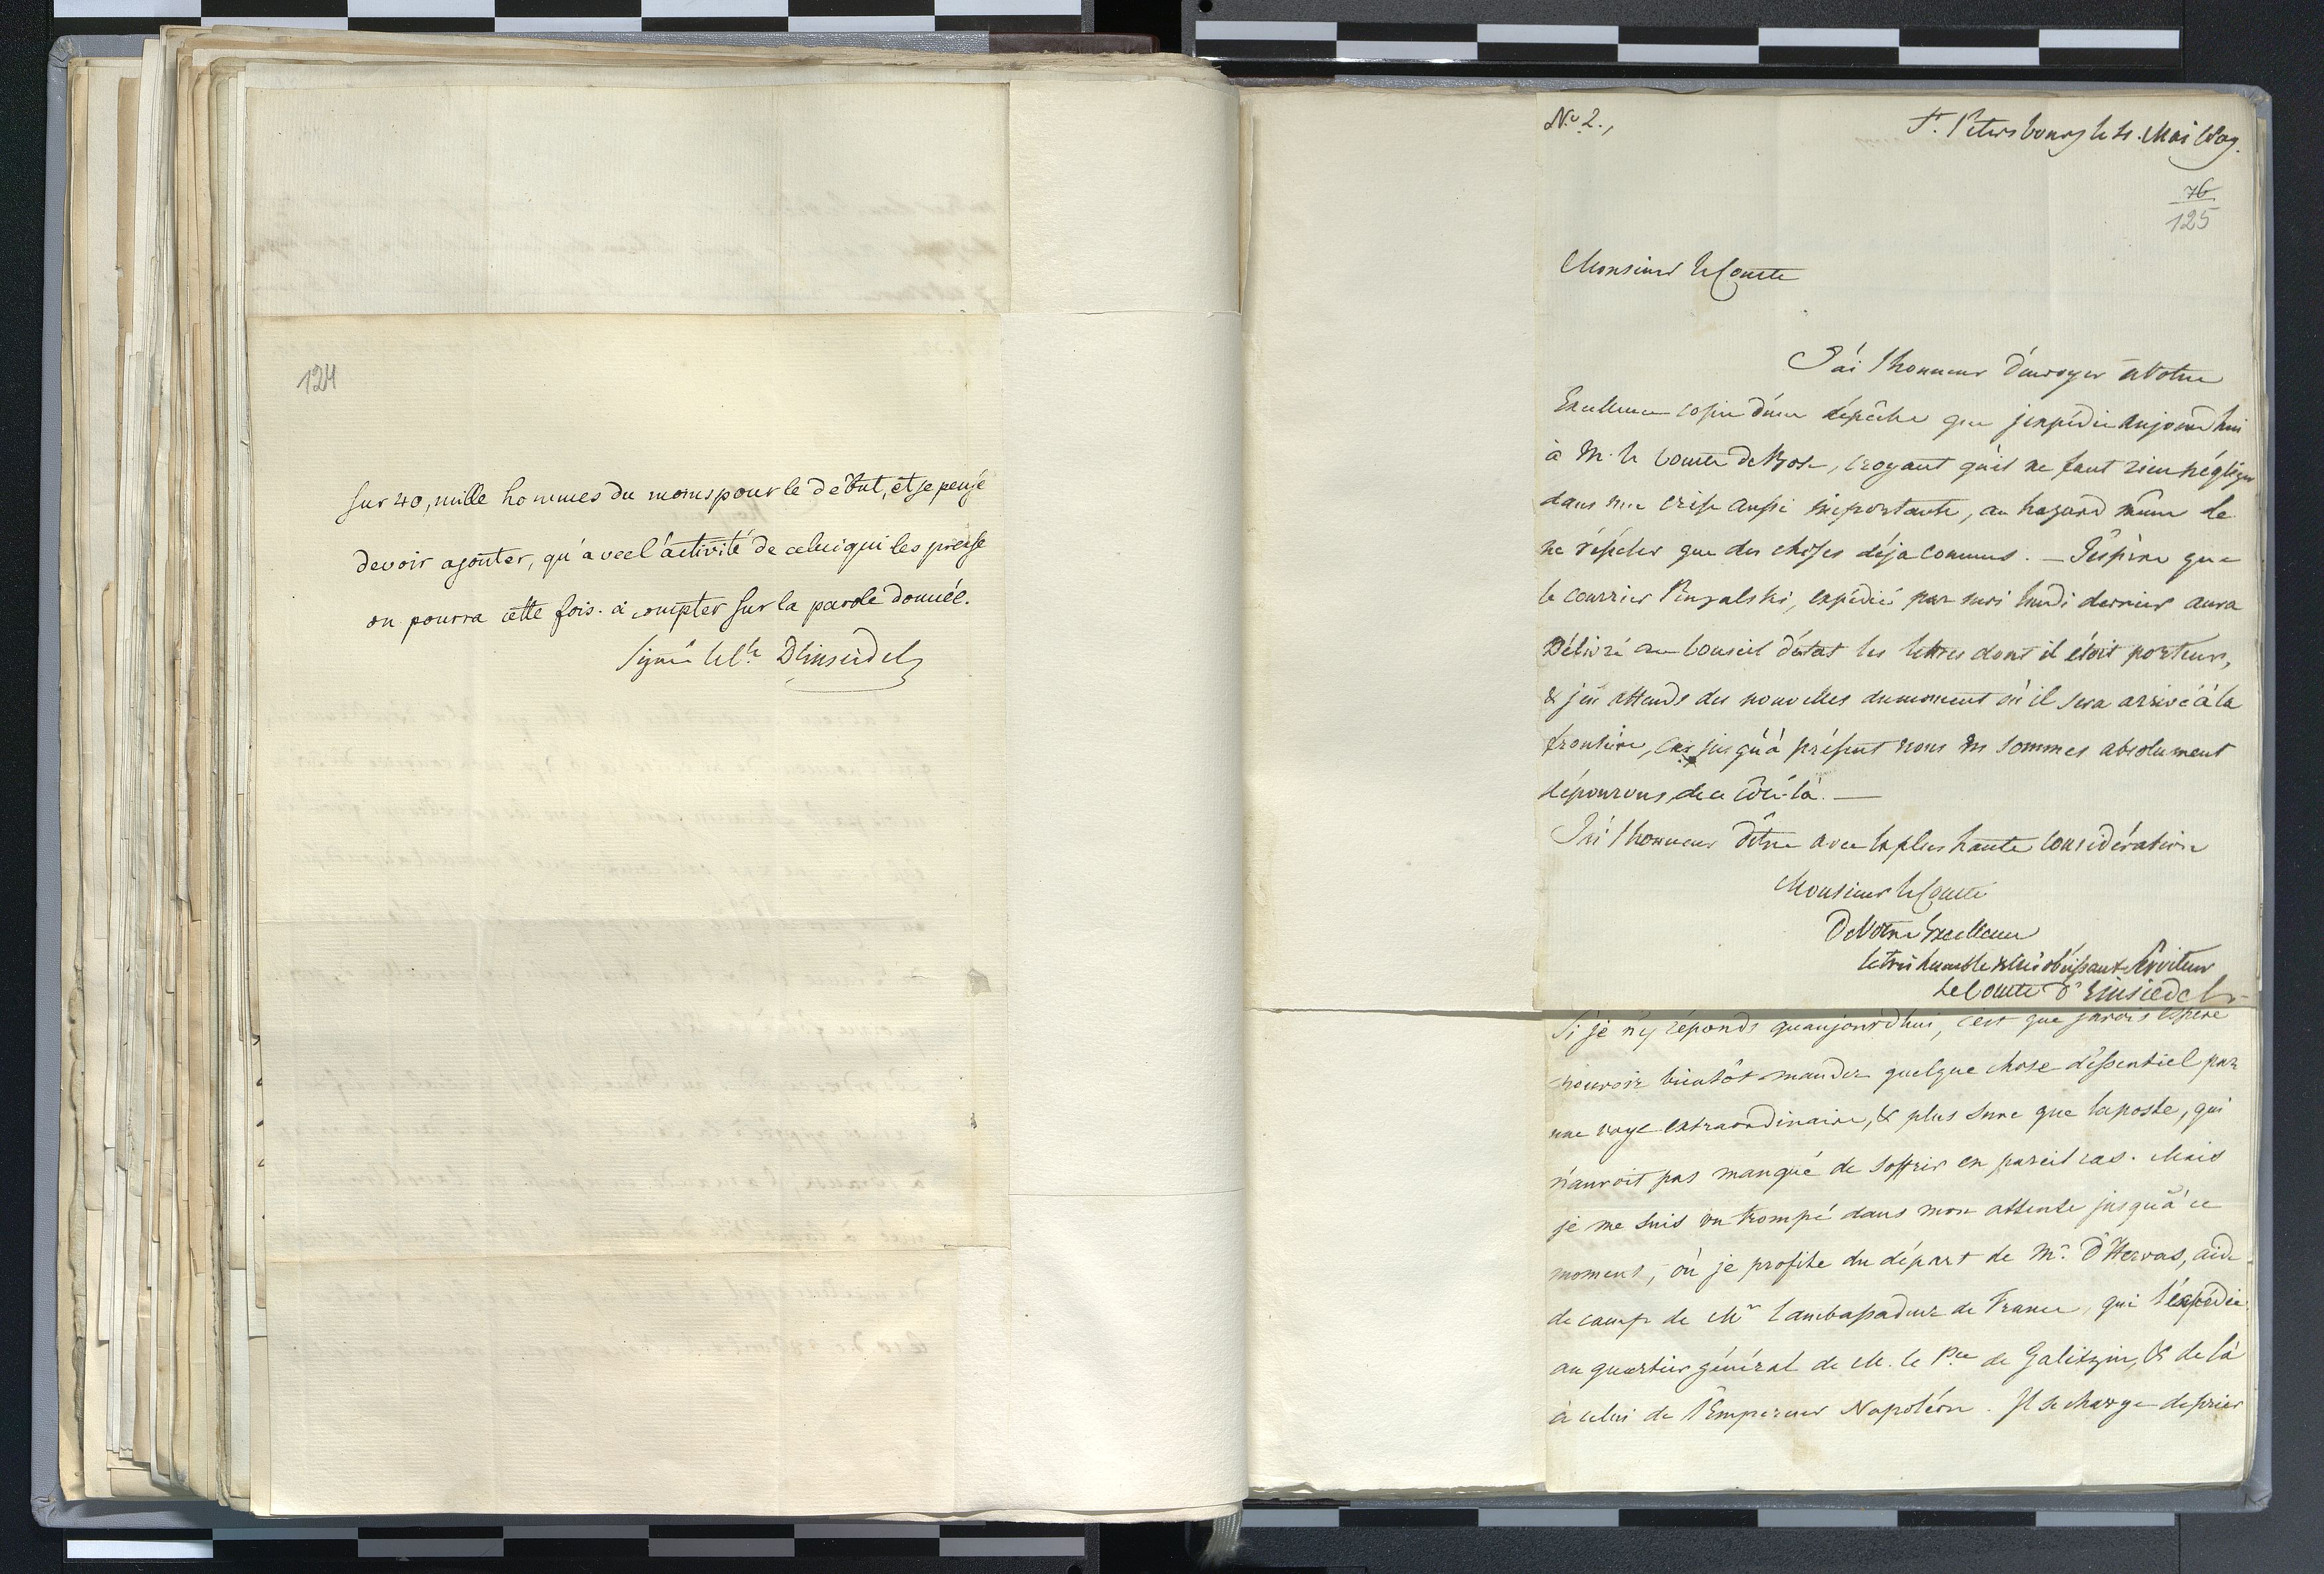 124
sur 40, mille hommes du moins pour le début, et je pense
devoir ajouter, qu'avec l'activité de celui qui les presse
on pourra cette fois-ci compter sur la parole donnée.
Signé le Cte D'Einsiedel
No 2.,
St. Petersbourg le Mai 1809.
76
125
Monsieur le Comte
J'ai l'honneur d'envoyer à Votre
Excellence copie d'une dépêche que j'expédie aujourdhui
à M. le Comte de Bose, croyant qu'il ne faut rien négliger
dans une crise aussi importante, au hazard même de
ne répéter que des choses déja connues. — J'espère que
le courrier expédié par moi lundi dernier aura
délivré au Conseil d'état les lettres dont il étoit porteur,
& j'en attends des nouvelles du moment où il sera arrivé à la
frontière, car jusqu'à présent nous en sommes absolument
dépourvus de ce côté-là. —
J'ai l'honneur d'être avec la plus haute considération
Monsieur le Comte
De Votre Excellence
le très humble & très obéissant Serviteur
Le Comte d'Einsiedel
Si je n'y réponds qu'aujourdhui, c'est que j'avois espéré
pouvoir bientôt mander quelque chose d'essentiel par
une voye extraordinaire, & plus sure que la poste, qui
n'auroit pas manqué de s'offrir en pareil cas. Mais
je me suis vu trompé dans mon attente jusqu'à ce
moment, où je profite du départ de Mr. d'Hervas, aide
de camp de Mr l'ambassadeur de France, qui l'expédie
au quartier général de M. le Pce de Galitzin, & de là
à celui de l'Empereur Napoléon. Il se charge de prier